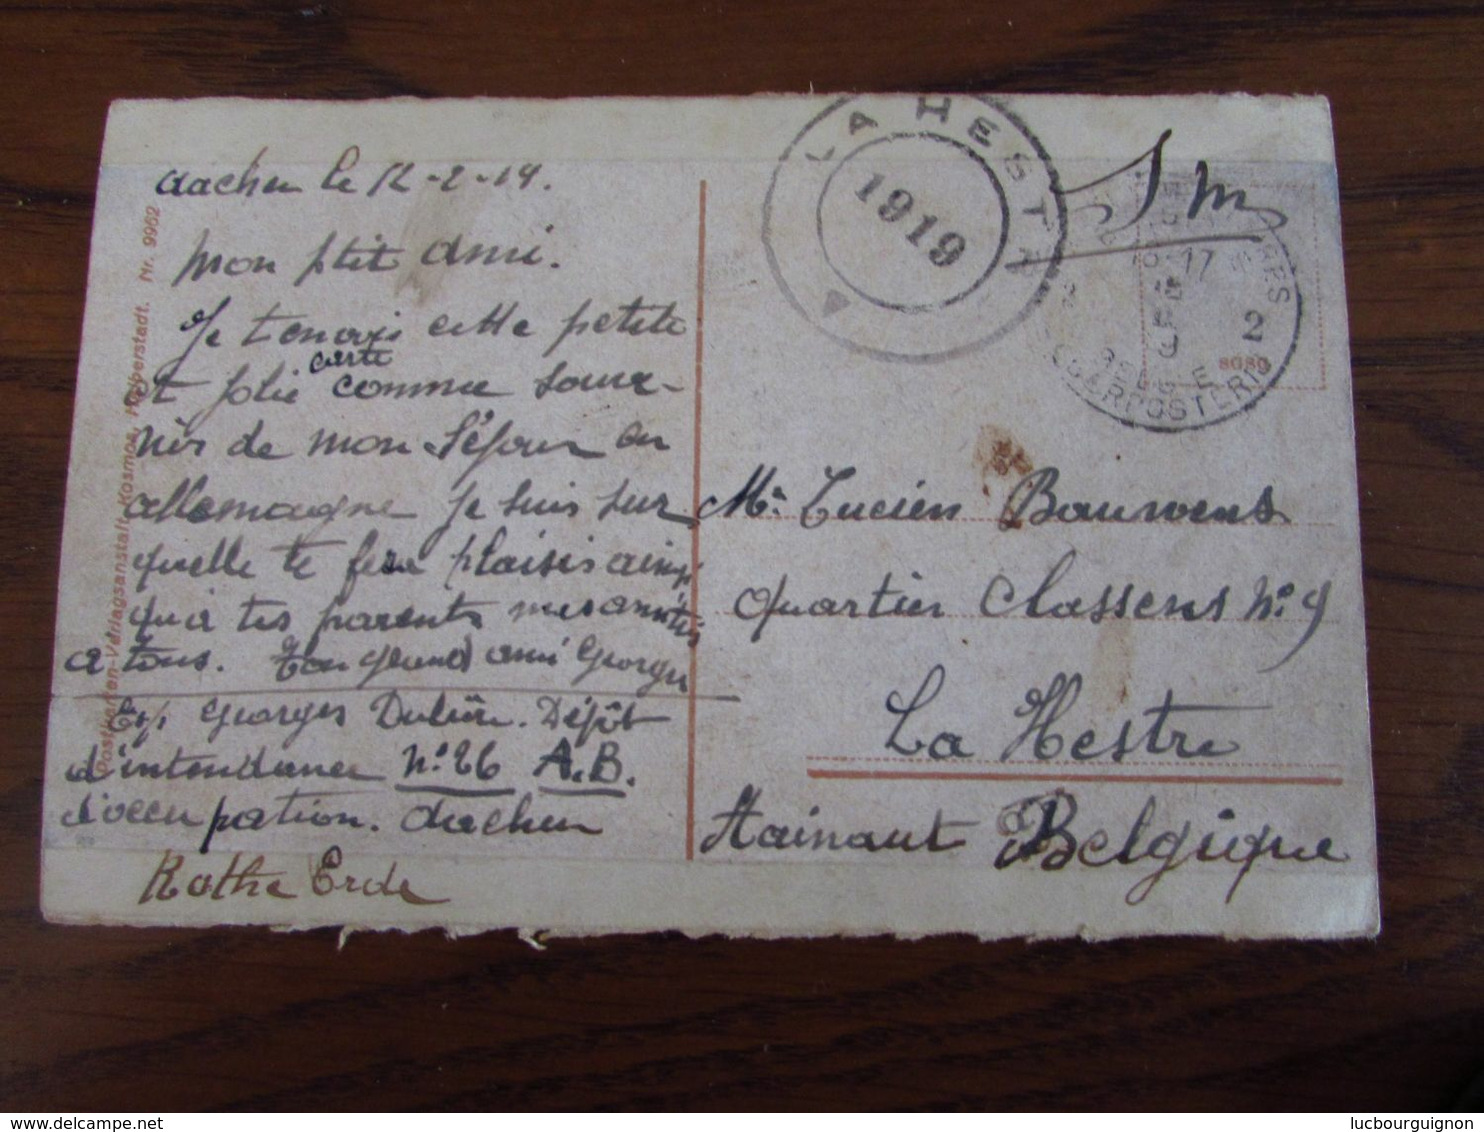 Aachen le 12-2-19.
Mon ptit ami.
Je t'envoie cette petite
et jolie carte comme souve-
nirs de mon séjour en
allemagne je suis sur
quelle te fera plaisir ainsi
qu'a tes parents mes amitiés
a tous. Ton grand ami Georges
Exp Georges Dulière. Dépôt
d'intendance N° 26 A.B.
d'occupation. Aachen
Rothe Erde
Postkarten-Verlagsanstalt Kosmos, Halberstadt. Nr. 9962
LA HESTR
1919
S m
17
2
BELGE
LEGERPOSTERIJ
Mr. Lucien Bauwens
Quartier Classens N° 9
La Hestre
Hainaut Belgique
delcampe.net
lucbourguignon